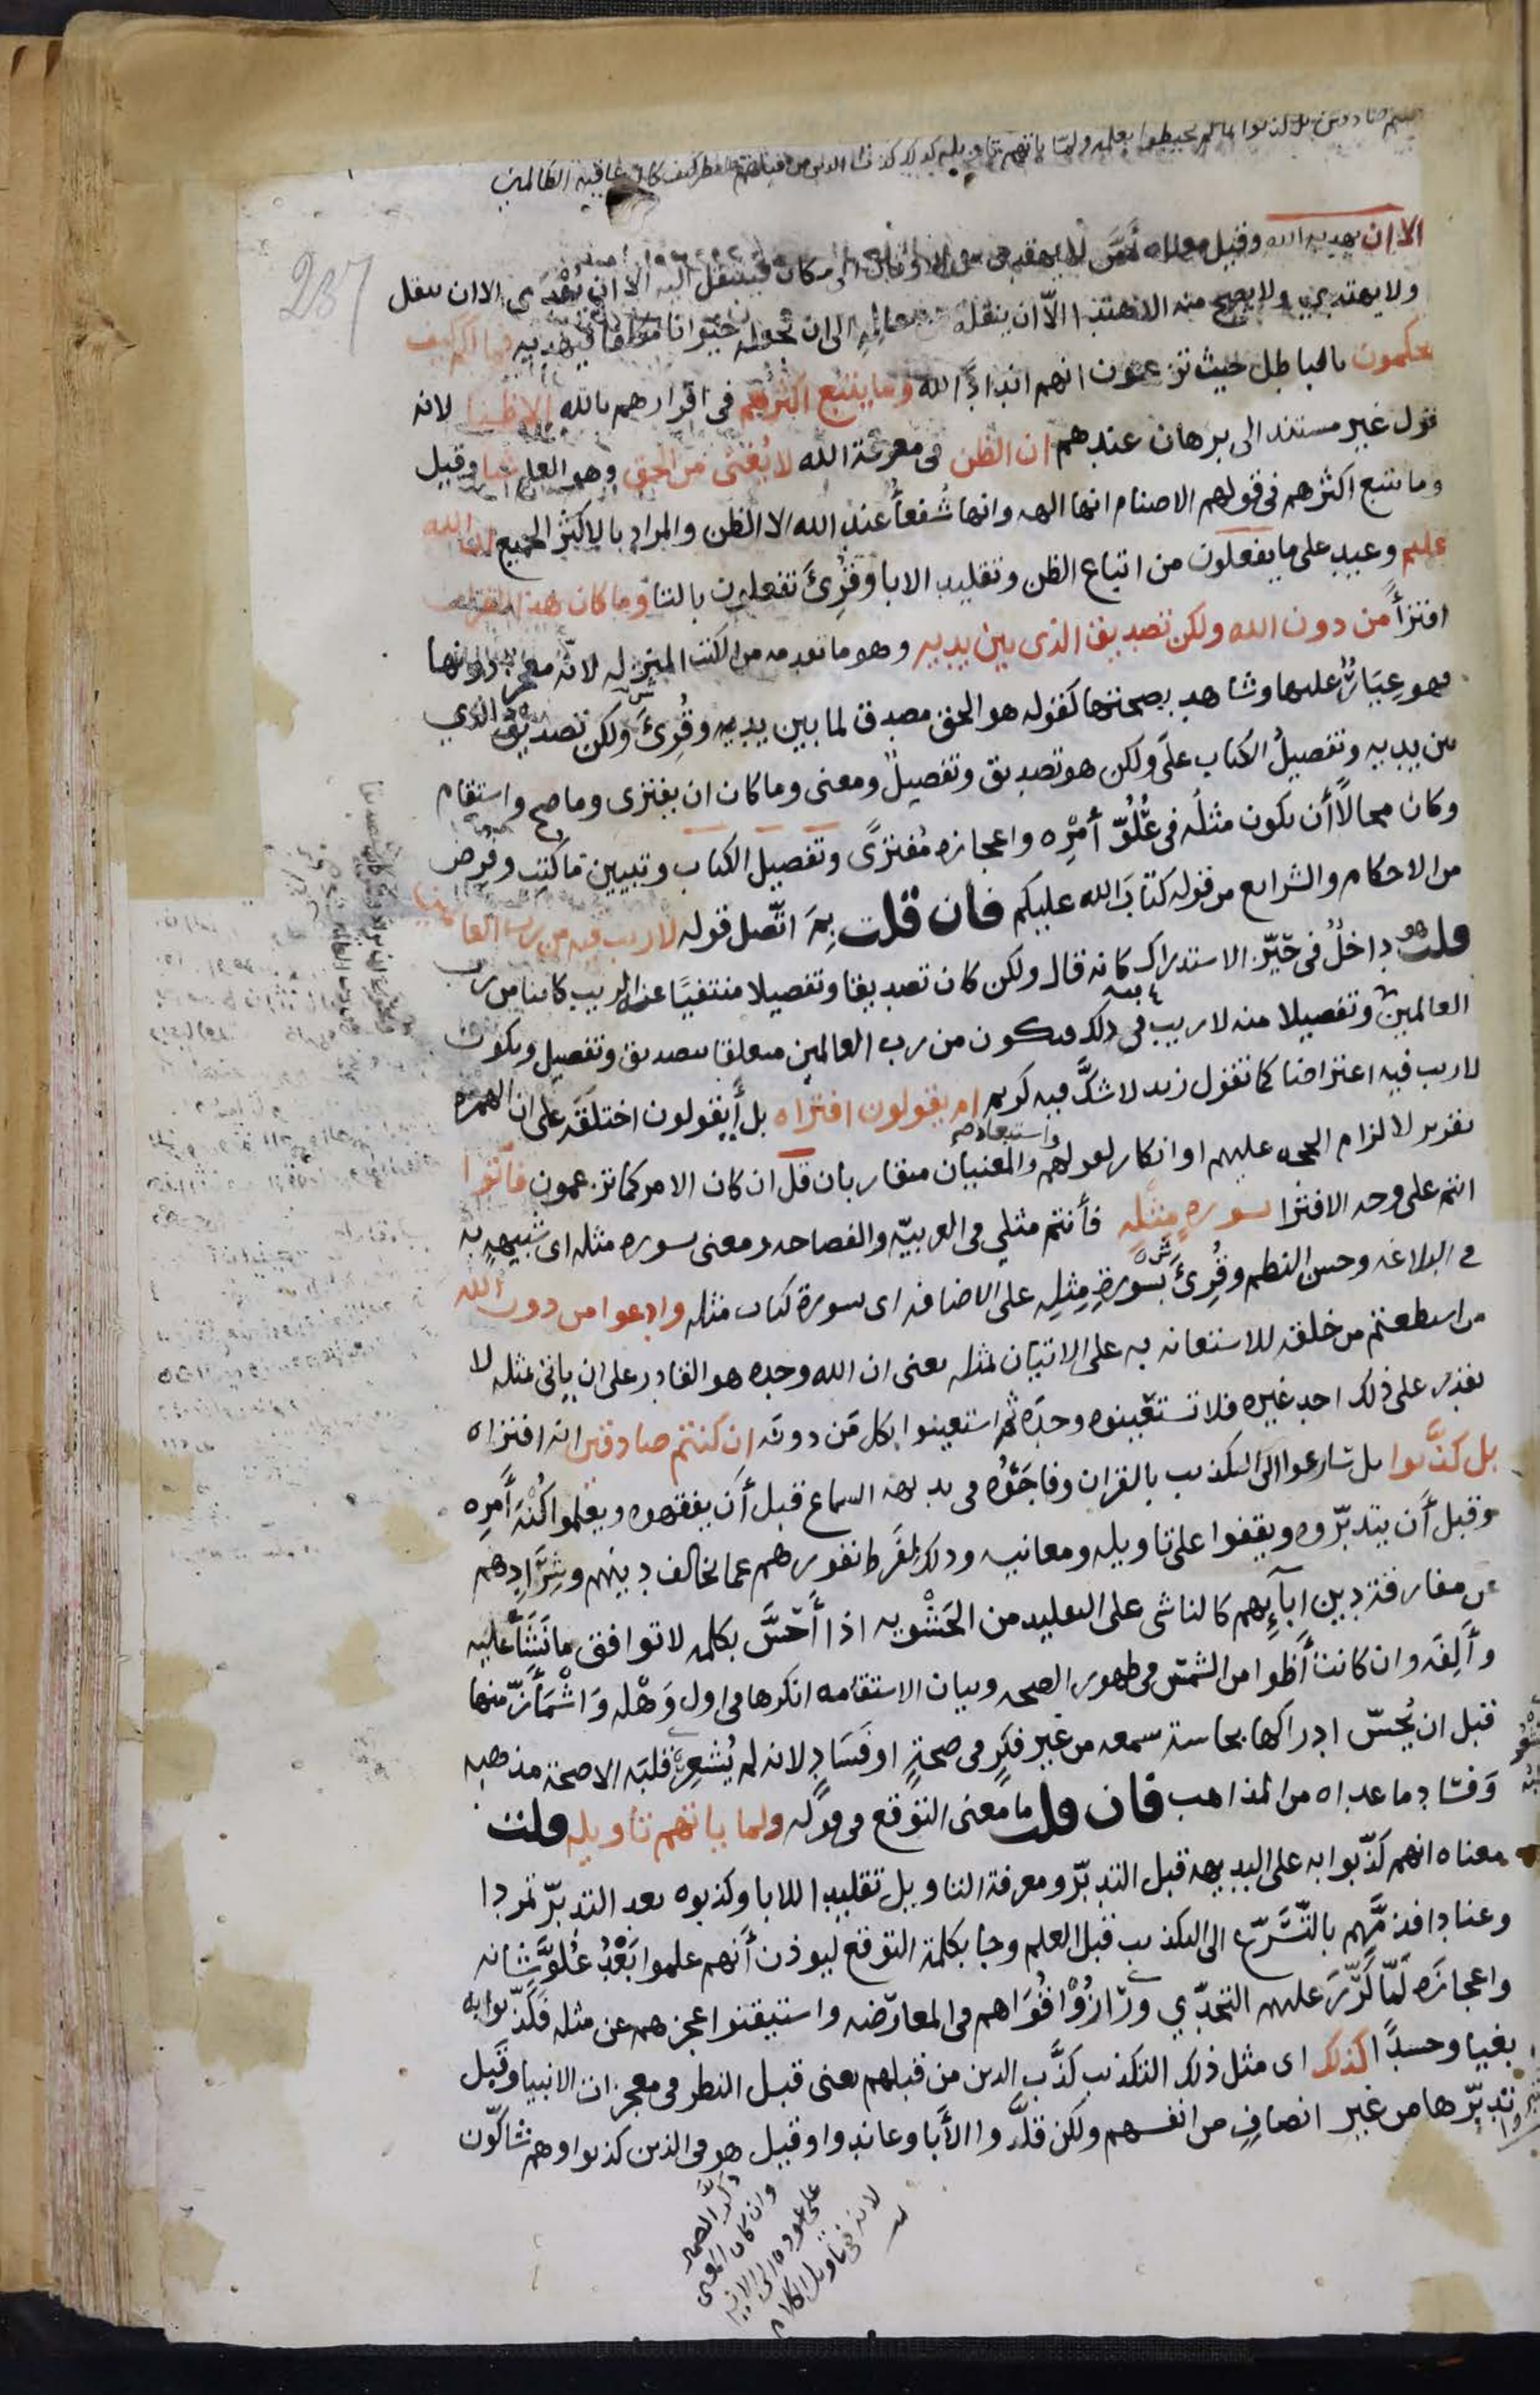 صادقين بل كذبوا بما لم يحيطوا بعلمه ولما ياتهم تاويله كذلك كذب الذين من قبلهم فانظر كيف كان عاقبة الظالمين
237
الا ان يهديه الله وقيل معناه أمّن لا يهتدى من الاوثان الى مكان فينتقل اليه الا ان يُهْدَى الا ان ينقل
ولا يهتدي ولا يصح منه الاهتدا الّا ان ينقله من حاله الى ان يجعله حيوانا مكلفا فيهديه فما لكم كيف
تحكمون بالباطل حيث تزعمون انهم اندادُ الله وما يتبع اكثرهم فى اقرارهم بالله الا ظنا لانه
قول غير مستند الى برهان عندهم ان الظن فى معرفة الله لا يُغنى من الحق وهو العلم شيا وقيل
وما يتبع اكثرهم فى قولهم الاصنام انها الهه وانها شُفعاُ عند الله الا الظن والمراد بالاكثر الجميع ان الله
عليم وعيد على ما يفعلون من اتباع الظن وتقليد الابا وقُرِئَ تفعلون بالتا وما كان هذا القران
افتراُ من دون الله ولكن تصديق الذى بين يديه وهو ما تقدمه من الكتب المنزله لانّه معجز دونها
فهو عِيَارٌ عليها وشاهد بصحتها كقوله هو الحق مصدق لما بين يديه وقُرِئَ ولكن تصديق الذي
بين يديه وتفصيلُ الكتاب علَى ولكن هو تصديق وتفصيلٌ ومعنى وما كان ان يفترى وما صح واستقام
وكان محالًا أن يكون مثلُه فى عُلُوّ أمْرِه واعجازه مُفترًى وتفصيل الكتاب وتبيين ما كُتِب وفُرض
من الاحكام والشرايع من قوله كتابَ الله عليكم فان قلت بِمَ اتّصل قوله لا ريب فيه من رب العالمين
قلت هو داخلٌ فى حَيّز الاستدراك كانه قال ولكن كان تصديقا وتفصيلا منتفيًا عنه الريب كاينا من رب
العالمين وتفصيلا منه لا ريب فى ذلك فيكون من رب العالمين متعلقا بتصديق وتفصيل ويكون
لا ريب فيه اعتراضا كما تقول زيد لا شكَّ فيه كريم ام يقولون افتراه بل أيقولون اختلقَه على ان الهمزه
تقرير لالزام الحجه عليهم او انكار لقولهم واستبعاد والمعنيان متقاربان قل ان كان الامر كما تزعمون فأتوا
انتم على وجه الافترا بسورهٍ مثلِه فأنتم مثلي فى العربيّه والفصاحه ومعنى بسوره مثله اى شبيهه به
فى البلاغه وحسن النظم وقُرِئَ بسورةِ مِثلِه على الاضافه اى بسورة كتاب مثله وادعوا من دون الله
من استطعتم من خلقه للاستعانه به على الاتيان بمثله يعنى ان الله وحده هو القادر على ان ياتى بمثله لا
يقدر على ذلك احد غيره فلا تستعينوه وحدَه ثم استعينوا بكل مَن دونه ان كنتم صادقين انه افتراه
بل كذّبوا بل سارعوا الى التكذيب بالقران وفاجَؤُه فى بديهه السماع قبل أن يفقهوه ويعلموا كُنْهَ أمرِه
وقبل أن يتدبّروه ويقفوا على تاويله ومعانيه وذلك لفَرط نفورهم عما يخالف دينهم وشِرَادِهم
عن مفارقة دين ابآيهم كالناشى على التقليد من الحَشْويه اذا أَحَسَّ بكلمه لا توافق ما نَشَأ عليه
وأَلِفَه وان كانت أظوا من الشمس فى ظهور الصحه وبيان الاستقامه انكرها فى اول وَهْله وَاشْمَأَزّ منها
قبل ان يُحِسّ ادراكها بحاسة سمعه من غير فكرٍ فى صحةٍ او فَسَادٍ لانه لم يُشعِر قلبَه الا صحة مذهبه
وَفسَادِ ما عداه من المذاهب فان قلت ما معنى التوقع فى قوله ولما ياتهم تأويله قلت
معناه انهم كذّبوا به على البديهه قبل التدبّر ومعرفة التاويل تقليدا للابا وكذبوه بعد التدبّر تمردا
وعنادا فذمَّهم بالتّسَرّع الى التكذيب قبل العلم وجا بكلمة التوقع ليوذن أنهم علموا بَعْدُ عُلوَّ شانه
واعجازَه لَمّا كَرّرَ عليهم التحدّي ورَازُوْا قُوَاهم فى المعارَضه واستيقنوا عجزهم عن مثله فكَذّبوا به
بغيا وحسدًا كذلك اى مثل ذلك التكذيب كذَّب الذين من قبلهم يعنى قبل النظر فى معجزات الانبيا وقَبل
تدبّرها من غير انصافٍ من انفسهم ولكن قلَّدوا الأبا وعاندوا وقيل هو فى الذين كذبوا وهم شاكّون
ذكّر الضمير
وان كان المعنى
على عوده الى الاية
لانه فى تاويل الكلام